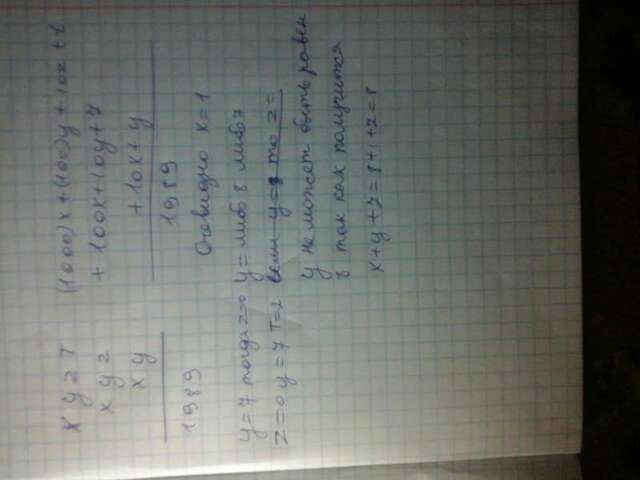 x y z T
x y z
x y
1989
(1000)x + (100)y + 10z + t
+ 100x + 10y + z
+ 10x + y
1989
Очевидно x = 1
y = 7 тогда z = 0 y = либо 8 либо 7
z = 0 y = 7 T = 2 если y = 8 то z =
y не может быть равен
8 так как получится
x + y + z = 8 + 1 + z = 8